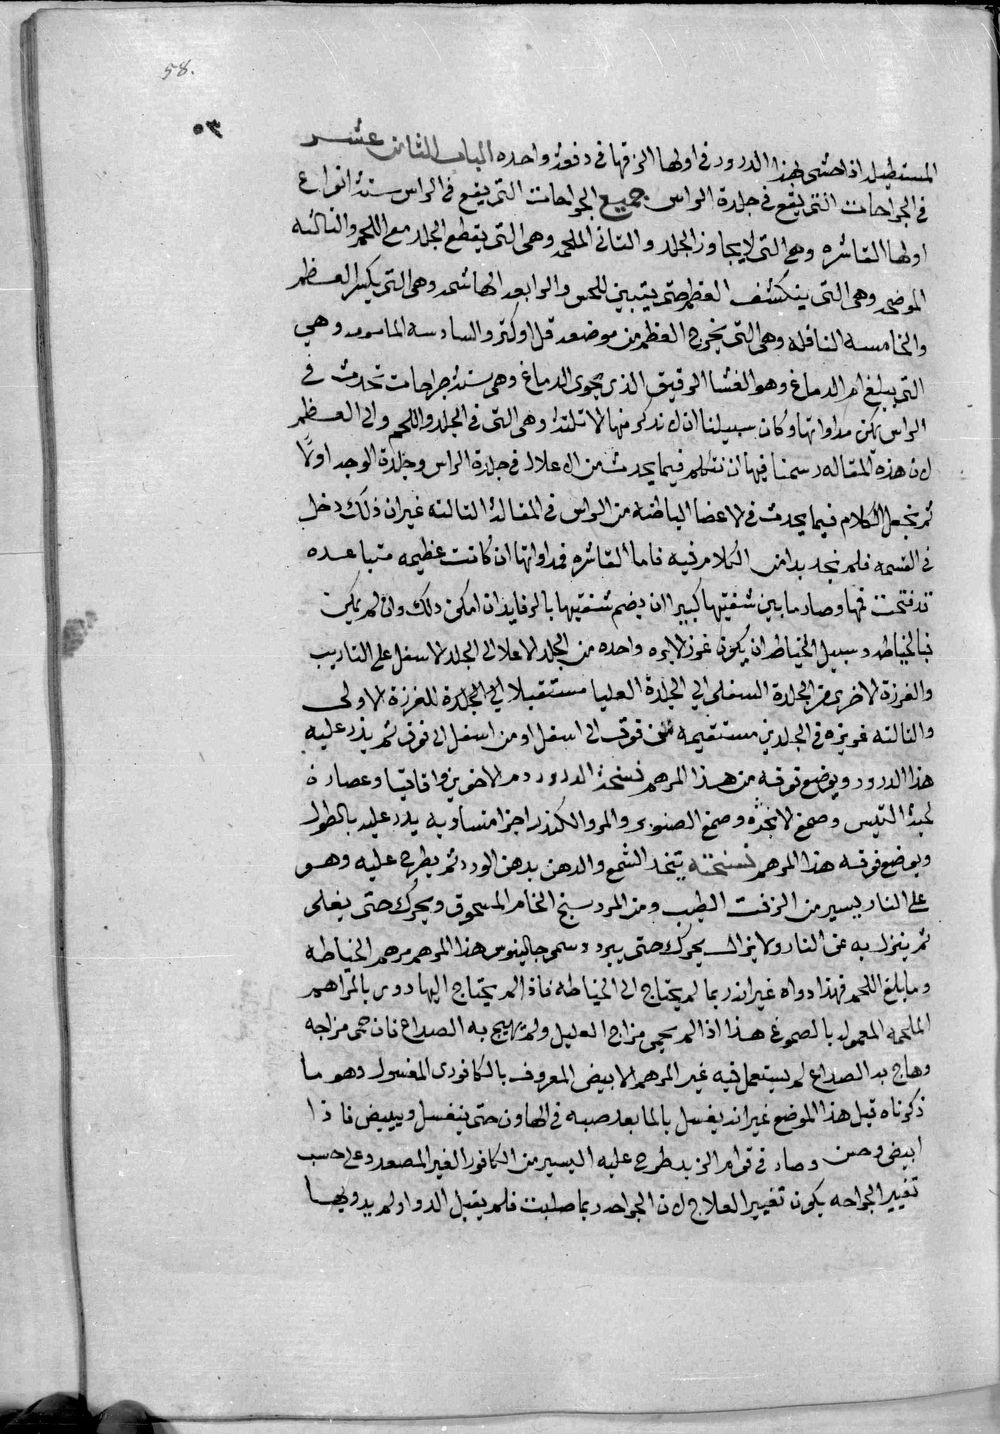 58.
٥٣
المستطيل اذا حشى بهذا الدرور في اولها الزقها في دفعة واحده الباب الثانى عشر
في الجراحات التى يقع في جلدة الراس جميع الجراحات التى يقع في الراس ستة انواع
اولها القاشره وهى التى لا يجاوز الجلد والثانى الملحمه وهى التى يقطع الجلد مع اللحم والثالثه
الموضحه وهى التى ينكشف العظم حتى يتبين للحس والرابعه الهاشمه وهى التى يكسر العظم
والخامسه الناقله وهى التى يخرج العظم من موضعه قل او كثر والسادسه المامومه وهي
التى يبلغ ام الدماغ وهو الغشا الرقيق الذى يحوى الدماغ وهى ستة جراحات تحدث في
الراس يمكن مداواتها وكان سبيلنا ان لا نذكر منها الا ثلثة وهى التى في الجلد واللحم والى العظم
لان هذه المقاله رسمنا فيها ان نتكلم فيما يحدث من الاعلال في جلدة الراس وجلدة الوجه اولًا
ثم نجعل الكلام فيما يحدث في الاعضا الباطنه من الراس في المقالة الثالثه غير ان ذلك دخل
في القسمه فلم نجد بدا من الكلام فيه فاما القاشره فمداواتها ان كانت عظيمه متباعده
قد فتحت فمها وصار ما بين شفتيها كبيرا ان يضم شفتيها بالرفايد ان امكن ذلك وان لم يمكن
فبالخياطه وسبيل الخياطه ان يكون غرز الابره واحده من الجلد الاعلا الى الجلد الاسفل على التاريب
والغرزة الاخرى من الجلدة السفلى الى الجلدة العليا مستقبلا الى الجلدة للغرزة الاولى
والثالثه غريزه في الجلدين مستقيمه من فوق الى اسفل او من اسفل الى فوق ثم يذر عليه
هذا الدرور ويوضع فوقه من هذا المرهم نسخة الدرور دم الاخوين واقاقيا وعصارة
لحية التيس وصمغ الانجذه وصمغ الصنوبر والمر والكندر اجزا متساويه يذر عليه بالطول
ويوضع فوقه هذا المرهم نسخته يتخذ الشمع والدهن بدهن الورد ثم يطرح عليه وهو
على النار يسير من الزفت الطيب ومن المردسنج الخام المسحوق ويحرك حتى يغلى
ثم ينزل به عن النار ولا يزال يحرك حتى يبرد وسمى جالينوس هذا المرهم مرهم الخياطه
وما بلغ اللحم فهذا دواه غير انه ربما لم يحتاج الى الخياطه فاذا لم يحتاج اليها دوى بالمراهم
الملحمه المعمول بالصموغ هذا اذا لم يحمى مزاج العليل ولم تهيج به الصداع فان حمى مزاجه
وهاج به الصداع لم يستعمل فيه غير المرهم الابيض المعروف بالكافورى المغسول وهو ما
ذكرناه قبل هذا الموضع غير انه يغسل بالما بعد صبه في الهاون حتى ينغسل ويبيض فاذا
ابيض وحسن وصار في قوام الزبد طرح عليه اليسير من الكافور الغير المصعد وعلى حسب
تغيير الجراحه يكون تغيير العلاج لان الجراحه ربما صلبت فلم يقبل الدوا ولم يدويها